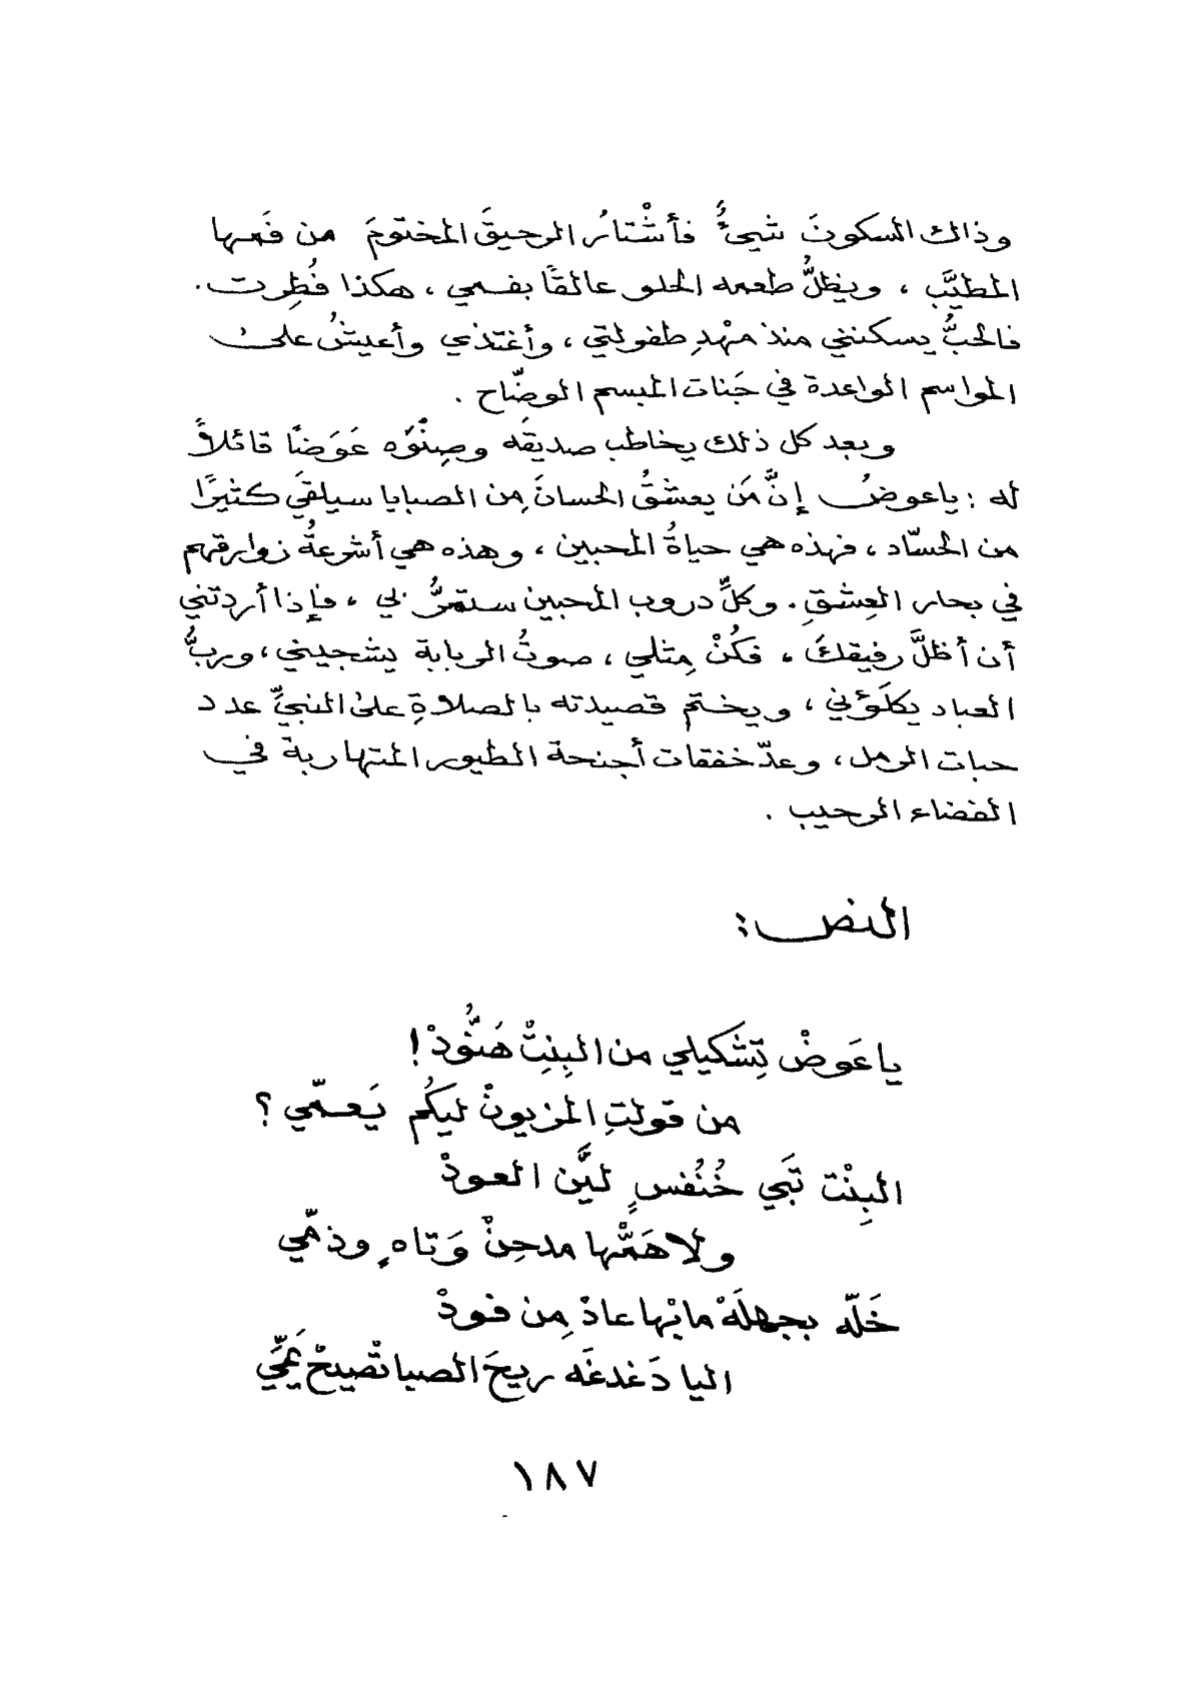 وذاك السكونَ شيءٌ فأشْتارُ الرحيقَ المختومَ من فَمها
المطيَّب ، ويظلُّ طعمه الحلو عالقًا بفمي ، هكذا فُطِرت .
فالحبُّ يسكنني منذ مهْدِ طفولتي ، وأغتذي وأعيشُ على
المواسم الواعدة في جَنات المبسم الوضّاح .
وبعد كل ذلك يخاطب صديقَه وصِنْوَه عَوَضًا قائلاً
له : ياعوضُ إنَّ مَن يعشقُ الحسانَ مِن الصبايا سيلقَي كثيرًا
من الحسّاد ، فهذه هي حياةُ المحبين ، وهذه هي أشرعةُ زوارقهم
في بحار العِشقِ . وكلُّ دروب المحبين ستمرُّ بي ، فإذا أردتني
أن أظلَّ رفيقكَ ، فكُنْ مِثلي ، صوتُ الربابة يشجيني ، وربُّ
العباد يكلَؤني ، ويختم قصيدته بالصلاةِ على النبيِّ عدد
حبات الرمل ، وعدّ خفقات أجنحة الطيور المتهاربة في
الفضاء الرحيب .
النص :
ياعَوضْ تِشَكيلي من البِنِتْ هَنُّودْ !
من قولتِ المزيونْ ليكُم يَعمّي ؟
البِنْت تَبي خُنُفسٍ ليَّن العودْ
ولا هَمْها مدحِنْ وَتاهٍ وذمّي
خَلّه بجهلَهْ مابْها عادْ مِن فودْ
اليا دَغدغَه ريحَ الصبا تْصيحْ يَمّي
١٨٧